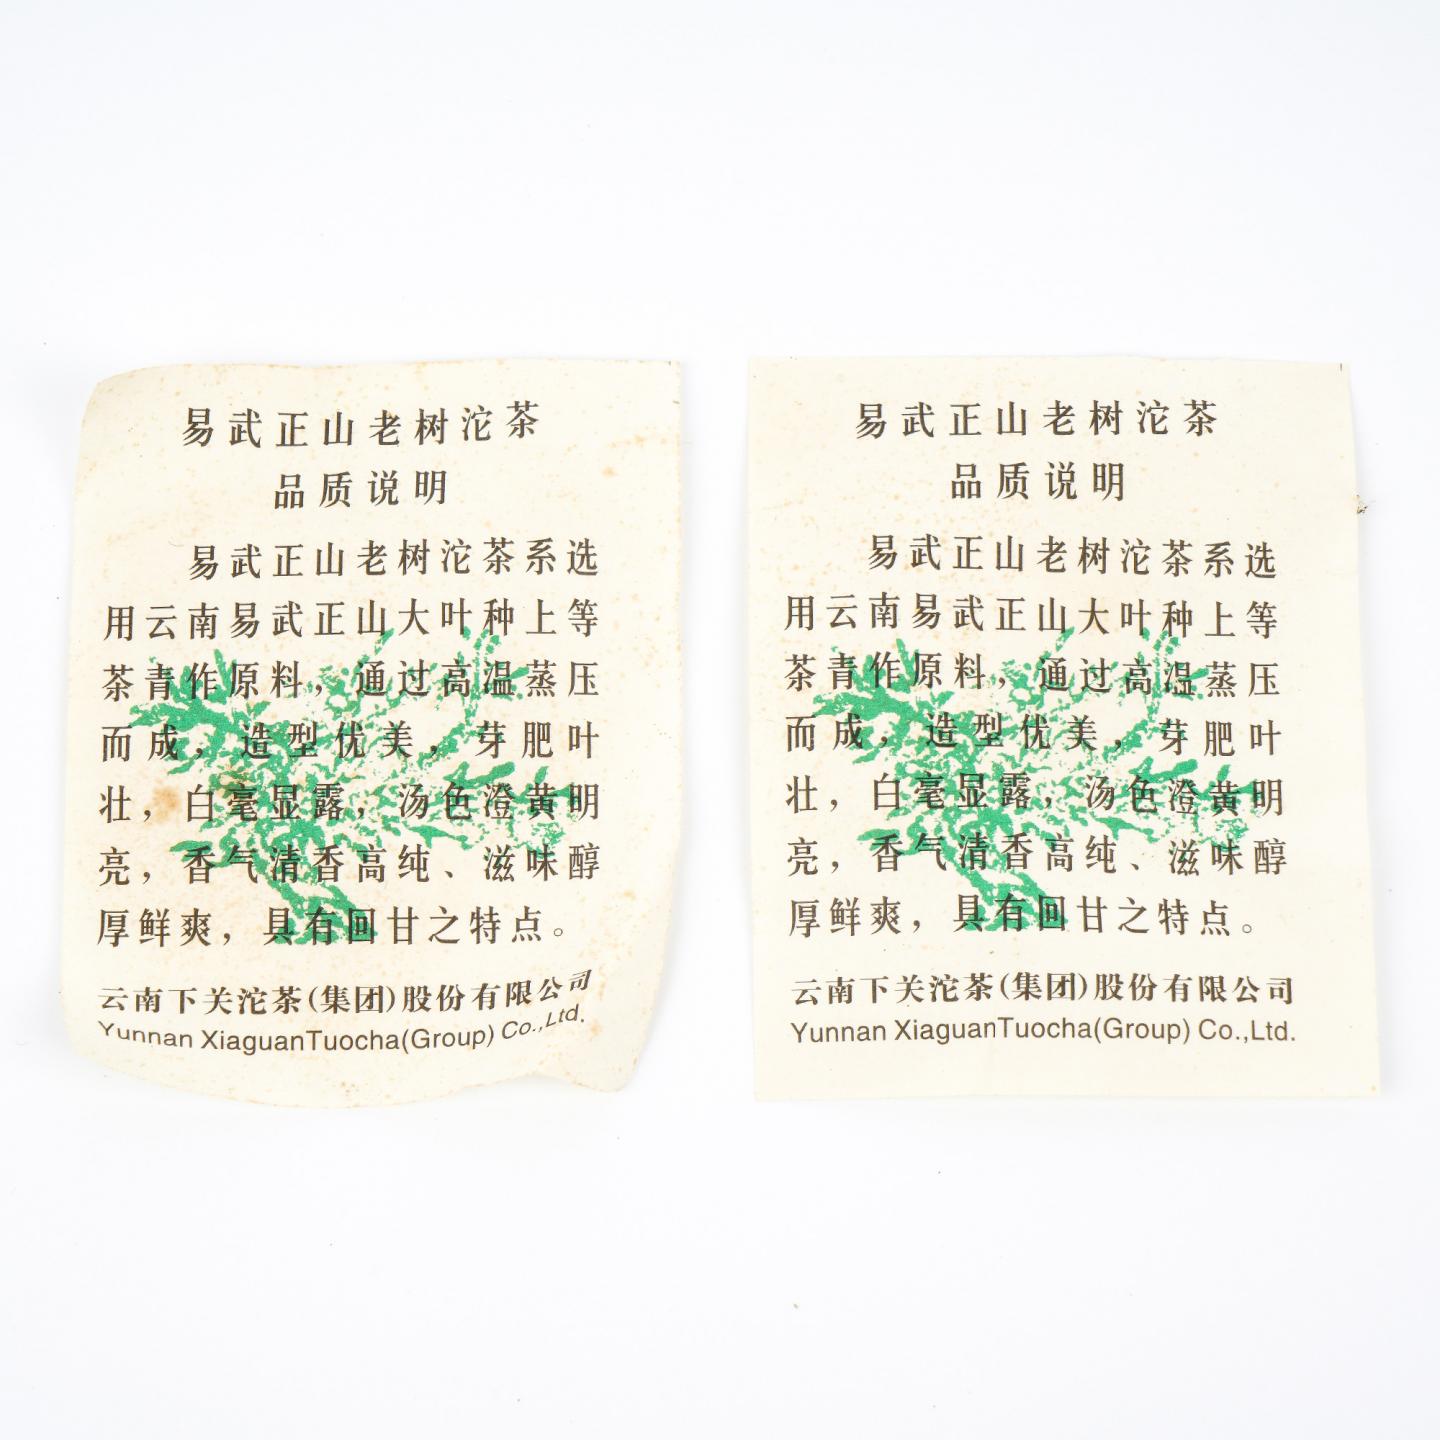 易武正山老树沱茶
品质说明
易武正山老树沱茶系选
用云南易武正山大叶种上等
茶青作原料，通过高温蒸压
而成，造型优美，芽肥叶
壮，白毫显露，汤色澄黄明
亮，香气清香高纯、滋味醇
厚鲜爽，具有回甘之特点。
云南下关沱茶(集团)股份有限公司
Yunnan XiaguanTuocha(Group) Co.,Ltd.
易武正山老树沱茶
品质说明
易武正山老树沱茶系选
用云南易武正山大叶种上等
茶青作原料，通过高温蒸压
而成，造型优美，芽肥叶
壮，白毫显露，汤色澄黄明
亮，香气清香高纯、滋味醇
厚鲜爽，具有回甘之特点。
云南下关沱茶(集团)股份有限公司
Yunnan XiaguanTuocha(Group) Co.,Ltd.